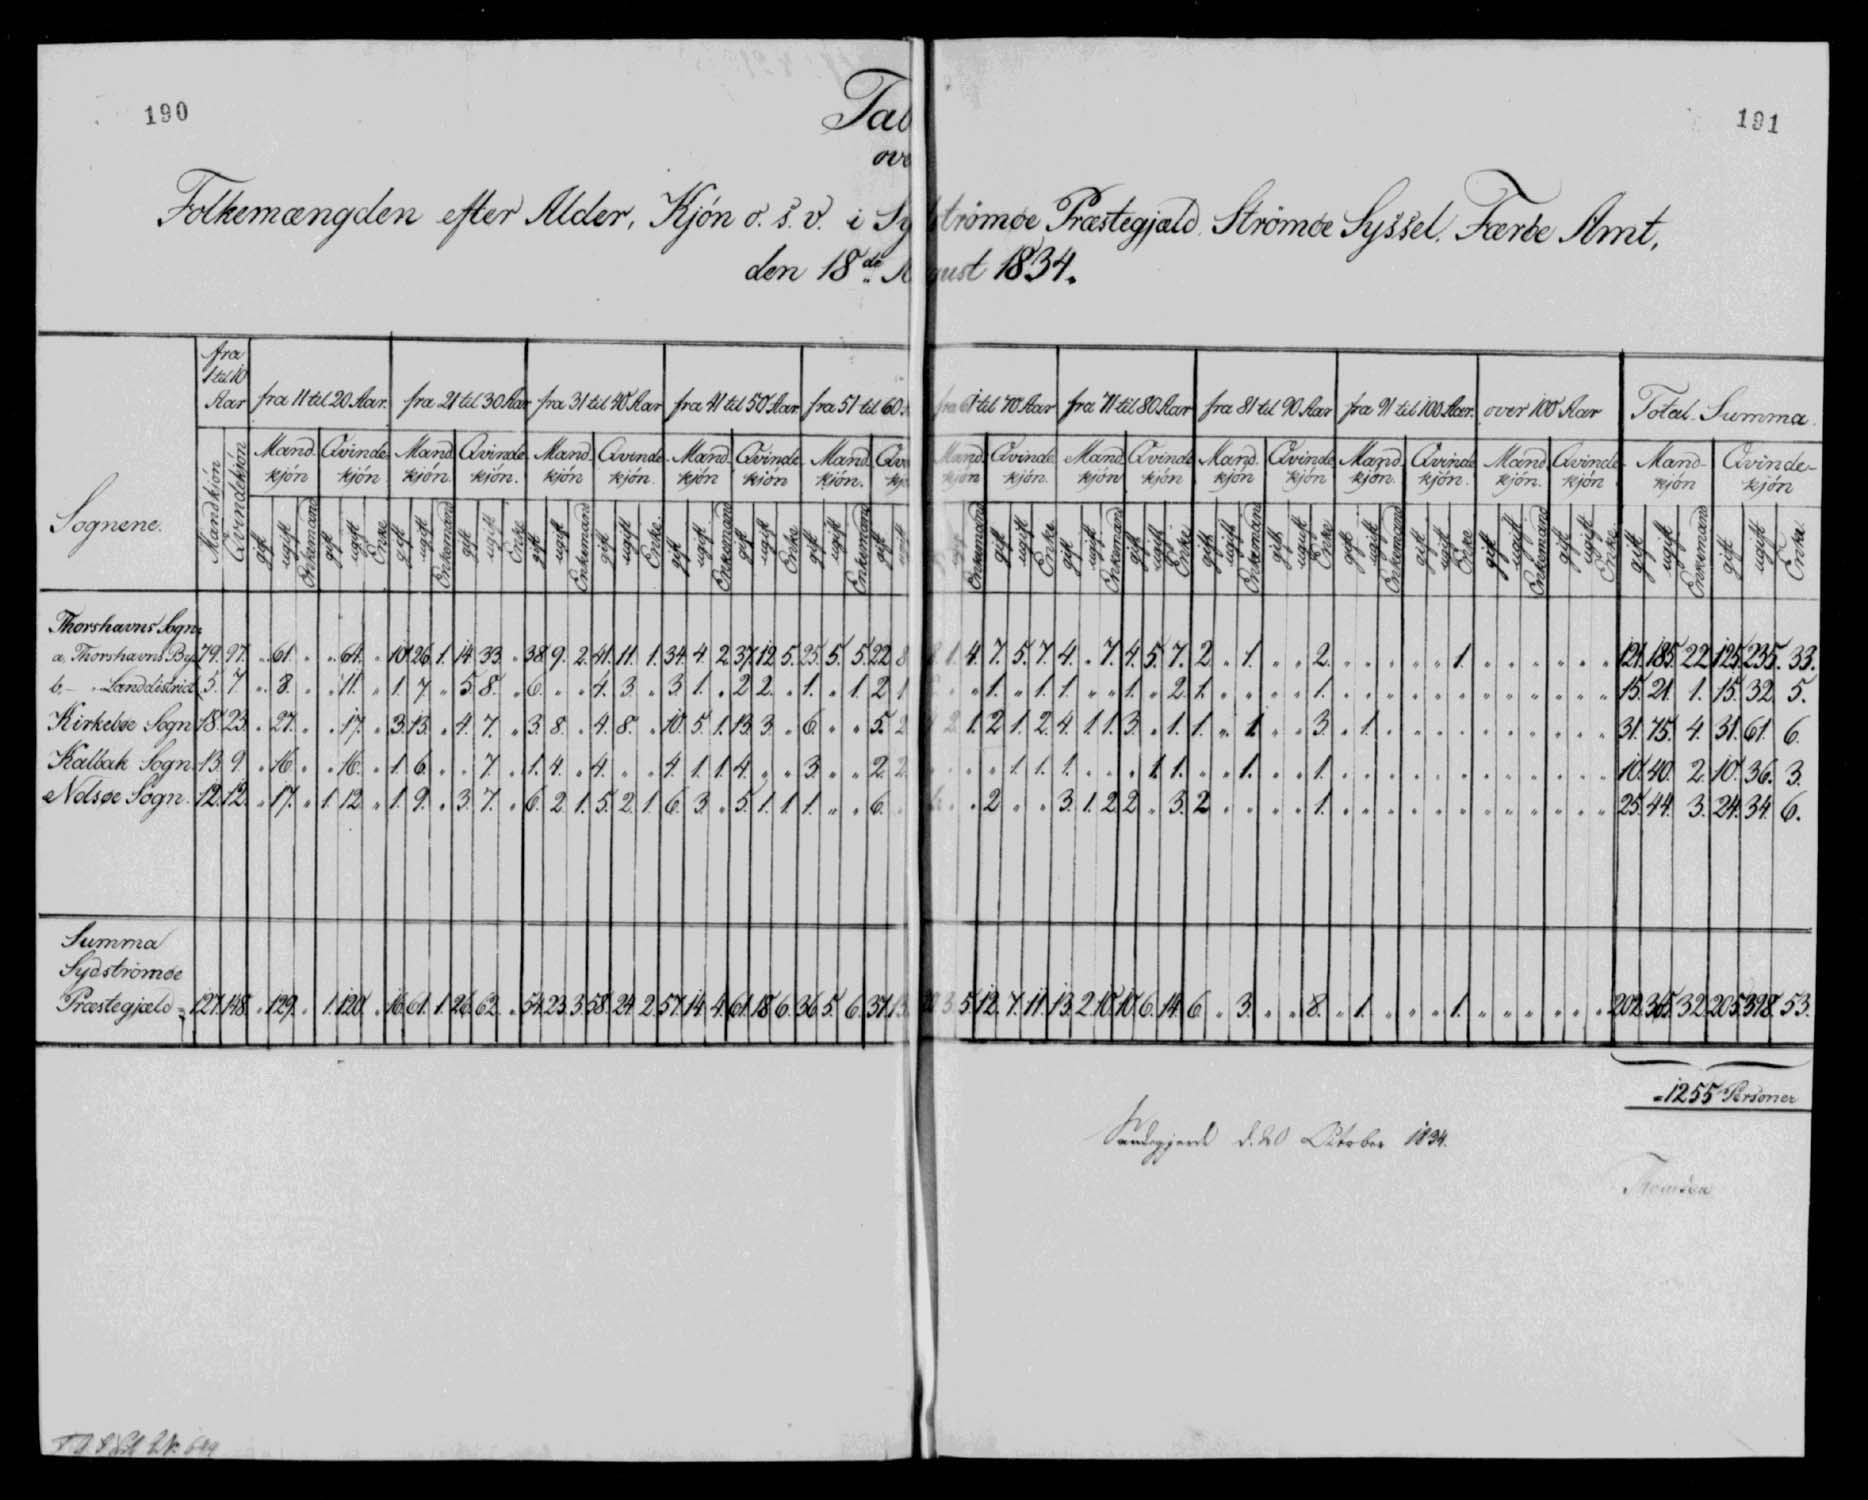 190
191
Tab
ove
Folkemængden efter Alder, Kjön o. s. v. i Sydströmøe Præstegjæld, Strömøe Syssel, Færøe Amt,
den 18de August 1834.
Sognene.
fra 1 til 10 Aar
fra 11 til 20 Aar.
fra 21 til 30 Aar
fra 31 til 40 Aar
fra 41 til 50 Aar
fra 51 til 60
fra 61 til 70 Aar
fra 71 til 80 Aar
fra 81 til 90 Aar
fra 91 til 100 Aar.
over 100 Aar
Total-Summa.
Mandkjón Qvindekjón
Mand-kjón Qvinde-kjón Mand-kjón Qvinde-kjón. Mand-kjón Qvinde-kjón. Mand-kjón Qvinde-kjón Mand-kjón. Qvi kjó
Mand-kjón Qvinde-kjón. Mand-kjón Qvinde-kjón Mand-kjón Qvinde-kjón Mand-kjón. Qvinde-kjón. Mand-kjón. Qvinde-kjón Mand-kjón Qvinde-kjón
gift ugift Enkemand gift ugift Enke gift ugift Enkemand gift ugift Enke gift ugift Enkemand gift ugift Enke. gift ugift Enkemand gift ugift Enke gift ugift Enkemand gift
Enkemand gift ugift Enke gift ugift Enkemand gift ugift Enke gift ugift Enkemand gift ugift Enke gift ugift Enkemand gift ugift Enke gift ugift Enkemand gift ugift Enke gift ugift Enkemand gift ugift Enke
Thorshavns Sogn:
a, Thorshavns By 79. 97. „ 61. „ „ 61. „ 10. 26. 1. 14. 33. „ 38. 9. 2. 41. 11. 1. 34. 4. 2. 37. 12. 5. 25. 5. 5. 22. 8 1. 4. 7. 5. 7. 4. „ 7. 4. 5. 7. 2. „ 1. „ „ 2. „ „ „ „ „ 1. „ „ „ „ „ „ 121. 185. 22. 125. 235. 33.
b, - „ Landdistrict 5. 7. „ 8. „ „ 11. „ 1. 7. „ 5. 8. „ 6. „ „ 4. 3. „ 3. 1. „ 2. 2. „ 1. „ 1. 2. 1 „ „ 1. „ 1. 1. „ „ 1. „ 2. 1. „ „ „ „ 1. „ „ „ „ „ „ „ „ „ „ „ „ 15. 21. 1. 15. 32. 5.
Kirkebøe Sogn 18. 23. „ 27. „ „ 17. „ 3. 13. „ 4. 7. „ 3. 8. „ 4. 8. „ 10. 5. 1. 13. 3. „ 6. „ „ 5. 2 2. 1. 2. 1. 2. 4. 1. 1. 3. „ 1. 1. „ 1. „ „ 3. „ 1. „ „ „ „ „ „ „ „ „ „ 31. 75. 4. 31. 61. 6.
Kalbak Sogn 13. 9. „ 16. „ „ 16. „ 1. 6. „ „ 7. „ 1. 4. „ 4. „ „ 4. 1. 1. 4. „ „ 3. „ „ 2. 2. „ „ „ 1. 1. 1. „ „ „ 1. 1. „ „ 1. „ „ 1. „ „ „ „ „ „ „ „ „ „ „ „ 10. 40. 2. 10. 36. 3.
Nolsøe Sogn. 12. 12. „ 17. „ 1. 12. „ 1. 9. „ 3. 7. „ 6. 2. 1. 5. 2. 1. 6. 3. „ 5. 1. 1. 1. „ „ 6. „ „ 2. „ „ 3. 1. 2. 2. „ 3. 2. „ „ „ „ 1. „ „ „ „ „ „ „ „ „ „ „ „ 25. 44. 3. 24. 34. 6.
Summa
Sydströmøe
Præstegjæld = 127. 148. „ 129. „ 1. 120. „ 16. 61. 1. 26. 62. „ 54. 23. 3. 58. 24. 2. 57. 14. 4. 61. 18. 6. 36. 5. 6. 37. 13 3. 5. 12. 7. 11. 13. 2. 10. 10. 6. 14. 6. „ 3. „ „ 8. „ 1. „ „ „ 1. „ „ „ „ „ „ 202. 365. 32. 205. 398. 53.
=1255 Personer
Sandegjerde d. 20 October 1834.